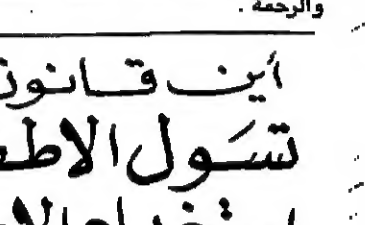 والرحمة .
أين قانون
تسَول الاطف